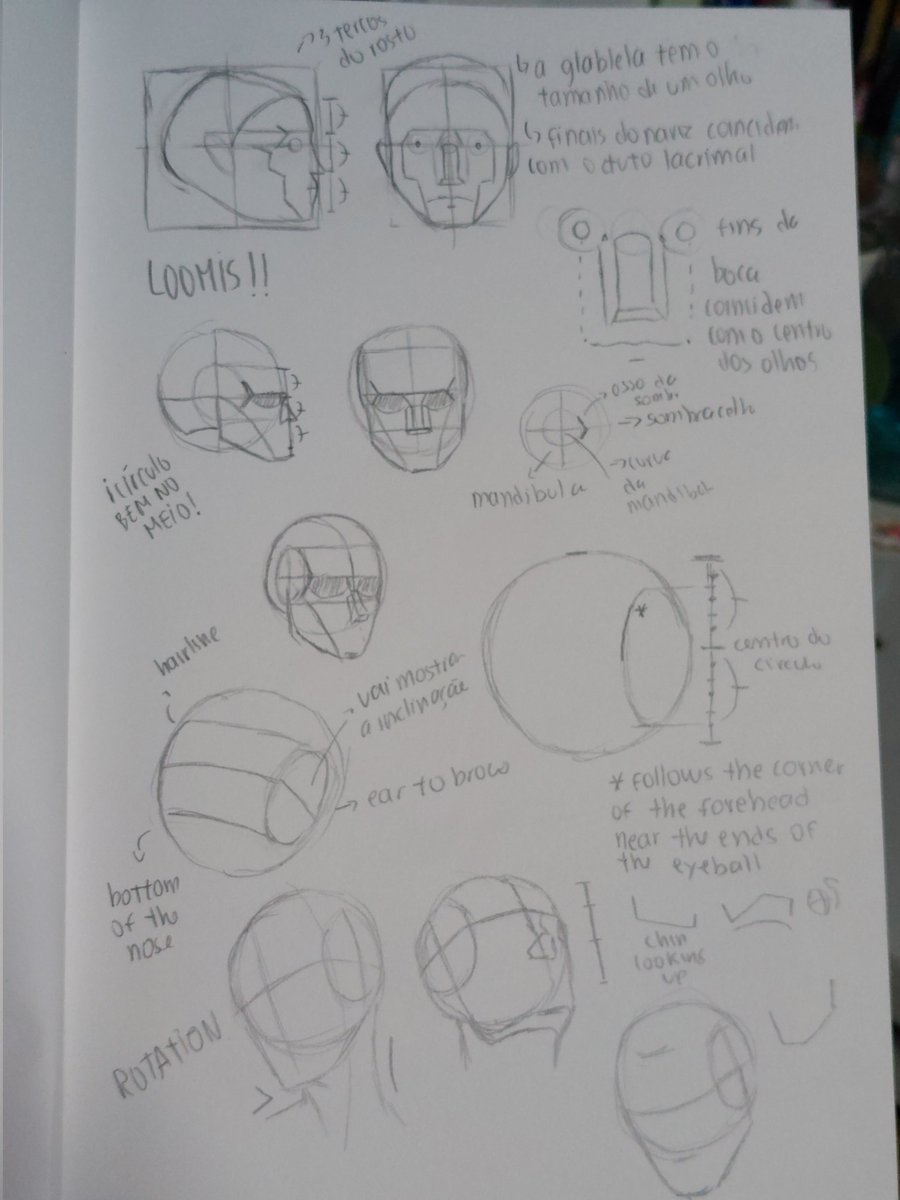 3 terços
do rosto
a glablela tem o
tamanho de um olho
finais do nariz coincidem
com o duto lacrimal
LOOMIS!!
fins da
boca
coincident
com o centro
dos olhos
círculo
BEM NO
MEIO!
osso da
sombr
sombracelh
mandibula
curva
da
mandibul
hairline
vai mostrar
a inclinação
ear to brow
bottom
of the
nose
centro do
circulo
* follows the corner
of the forehead
near the ends of
the eyeball
chin
looking
up
ROTATION